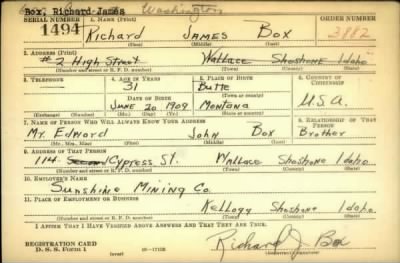 Box, Richard James Washington
SERIAL NUMBER 1. NAME (Print) ORDER NUMBER
1494 Richard JAMES Box 3882
(First) (Middle) (Last)
2. ADDRESS (Print)
# 2 High Street Wallace Shoshone Idaho
(Number and street or R. F. D. number) (Town) (County) (State)
3. TELEPHONE 4. AGE IN YEARS 5. PLACE OF BIRTH 6. COUNTRY OF CITIZENSHIP
31 Butte
DATE OF BIRTH (Town or county)
June 20 1909 Montana U.S.A.
(Exchange) (Number) (Mo.) (Day) (Yr.) (State or country)
7. NAME OF PERSON WHO WILL ALWAYS KNOW YOUR ADDRESS 8. RELATIONSHIP OF THAT PERSON
Mr. Edward John Box Brother
(Mr., Mrs., Miss) (First) (Middle) (Last)
9. ADDRESS OF THAT PERSON
114 Second Cypress St. Wallace Shoshone Idaho.
(Number and street or R. F. D. number) (Town) (County) (State)
10. EMPLOYER'S NAME
Sunshine Mining Co.
11. PLACE OF EMPLOYMENT OR BUSINESS
Kellogg Shoshone Idaho.
(Number and street or R. F. D. number) (Town) (County) (State)
I AFFIRM THAT I HAVE VERIFIED ABOVE ANSWERS AND THAT THEY ARE TRUE.
REGISTRATION CARD
D. S. S. Form 1
Richard J Box